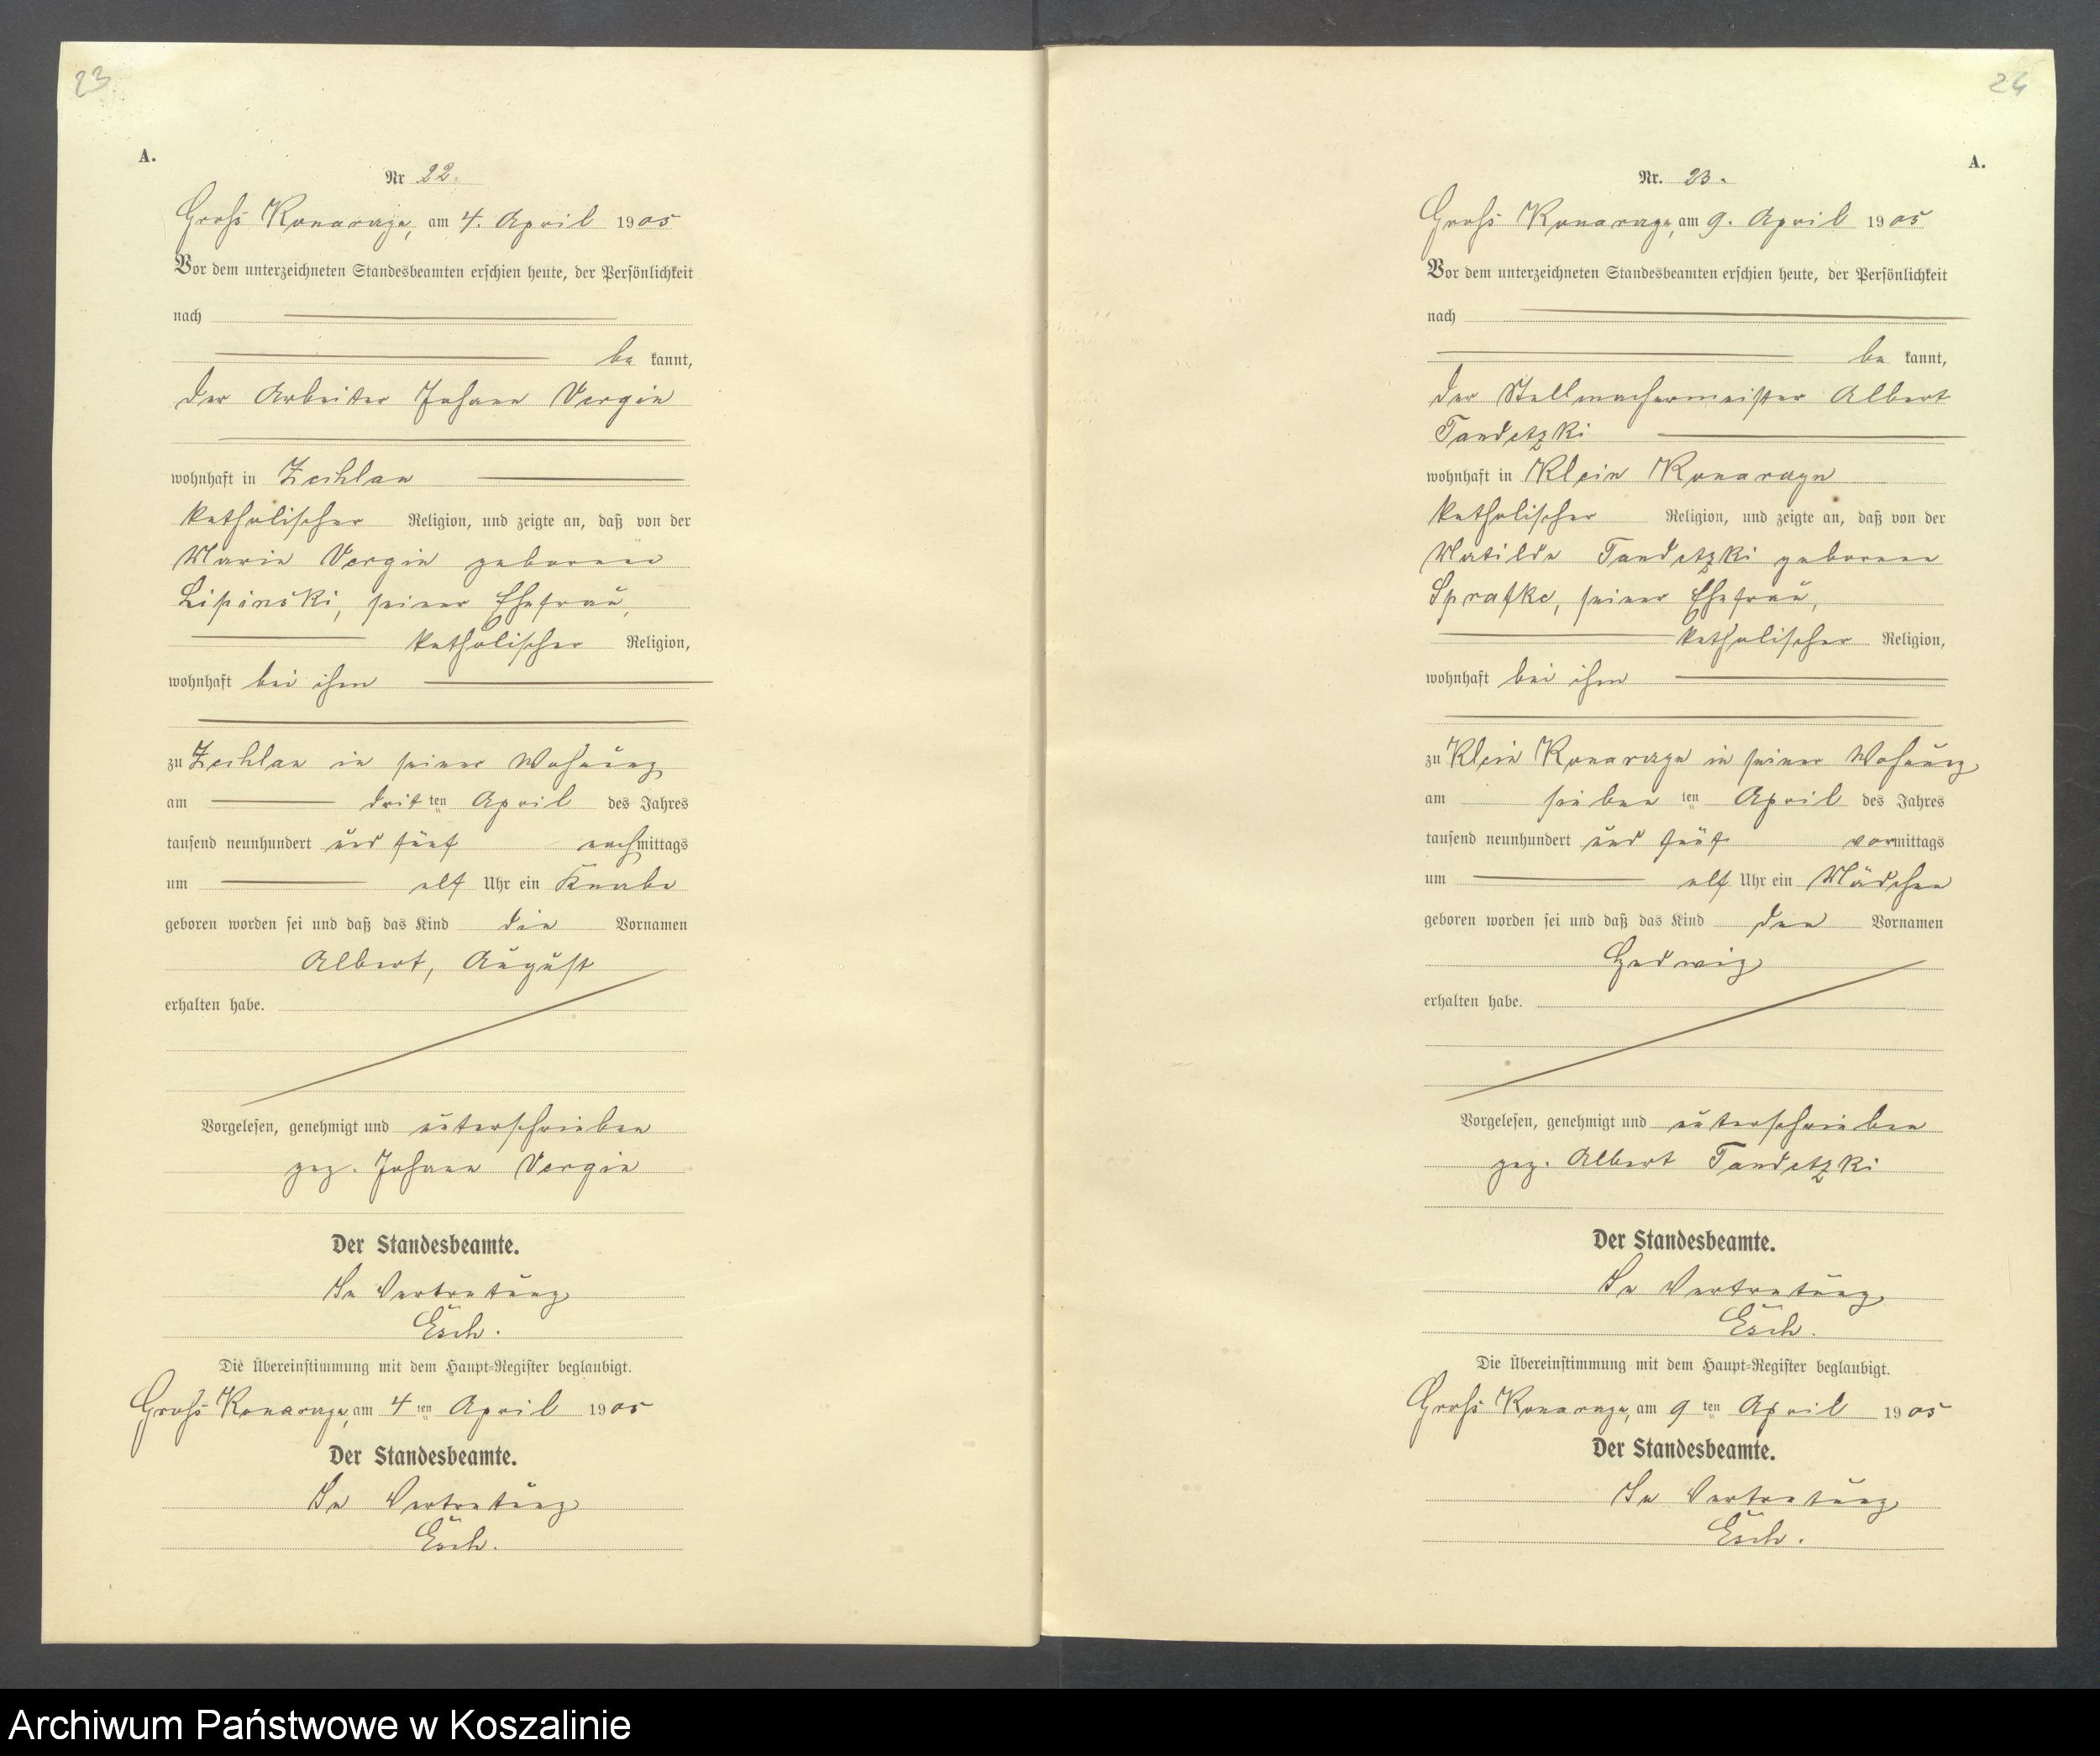 23
A.
Nr 22.
Groß Konarczyn, am 4. April 1905
Vor dem unterzeichneten Standesbeamten erschien heute, der Persönlichkeit
nach
be kannt,
der Arbeiter Johann Vergin
wohnhaft in Zechlau
katholischer Religion, und zeigte an, daß von der
Marie Vergin geborenen
Lipinski, seiner Ehefrau,
katholischer Religion,
wohnhaft bei ihm
zu Zechlau in seiner Wohnung
am drit ten April des Jahres
tausend neunhundert und fünf nachmittags
um elf Uhr ein Knabe
geboren worden sei und daß das Kind die Vornamen
Albert, August
erhalten habe.
Vorgelesen, genehmigt und unterschrieben
gez. Johann Vergin
Der Standesbeamte.
In Vertretung
Esch.
Die Übereinstimmung mit dem Haupt-Register beglaubigt.
Groß Konarczyn, am 4 ten April 1905
Der Standesbeamte.
In Vertretung
Esch.
24
A.
Nr. 23.
Groß Konarczyn, am 9. April 1905
Vor dem unterzeichneten Standesbeamten erschien heute, der Persönlichkeit
nach
be kannt,
der Stellmachermeister Albert
Tandetzki
wohnhaft in Klein Konarczyn
katholischer Religion, und zeigte an, daß von der
Matilde Tandetzki geborenen
Sprafke, seiner Ehefrau,
katholischer Religion,
wohnhaft bei ihm
zu Klein Konarczyn in seiner Wohnung
am sieben ten April des Jahres
tausend neunhundert und fünf vormittags
um elf Uhr ein Mädchen
geboren worden sei und daß das Kind den Vornamen
Hedwig
erhalten habe.
Vorgelesen, genehmigt und unterschrieben
gez. Albert Tandetzki
Der Standesbeamte.
In Vertretung
Esch.
Die Übereinstimmung mit dem Haupt-Register beglaubigt.
Groß Konarczyn, am 9 ten April 1905
Der Standesbeamte.
In Vertretung
Esch.
Archiwum Państwowe w Koszalinie